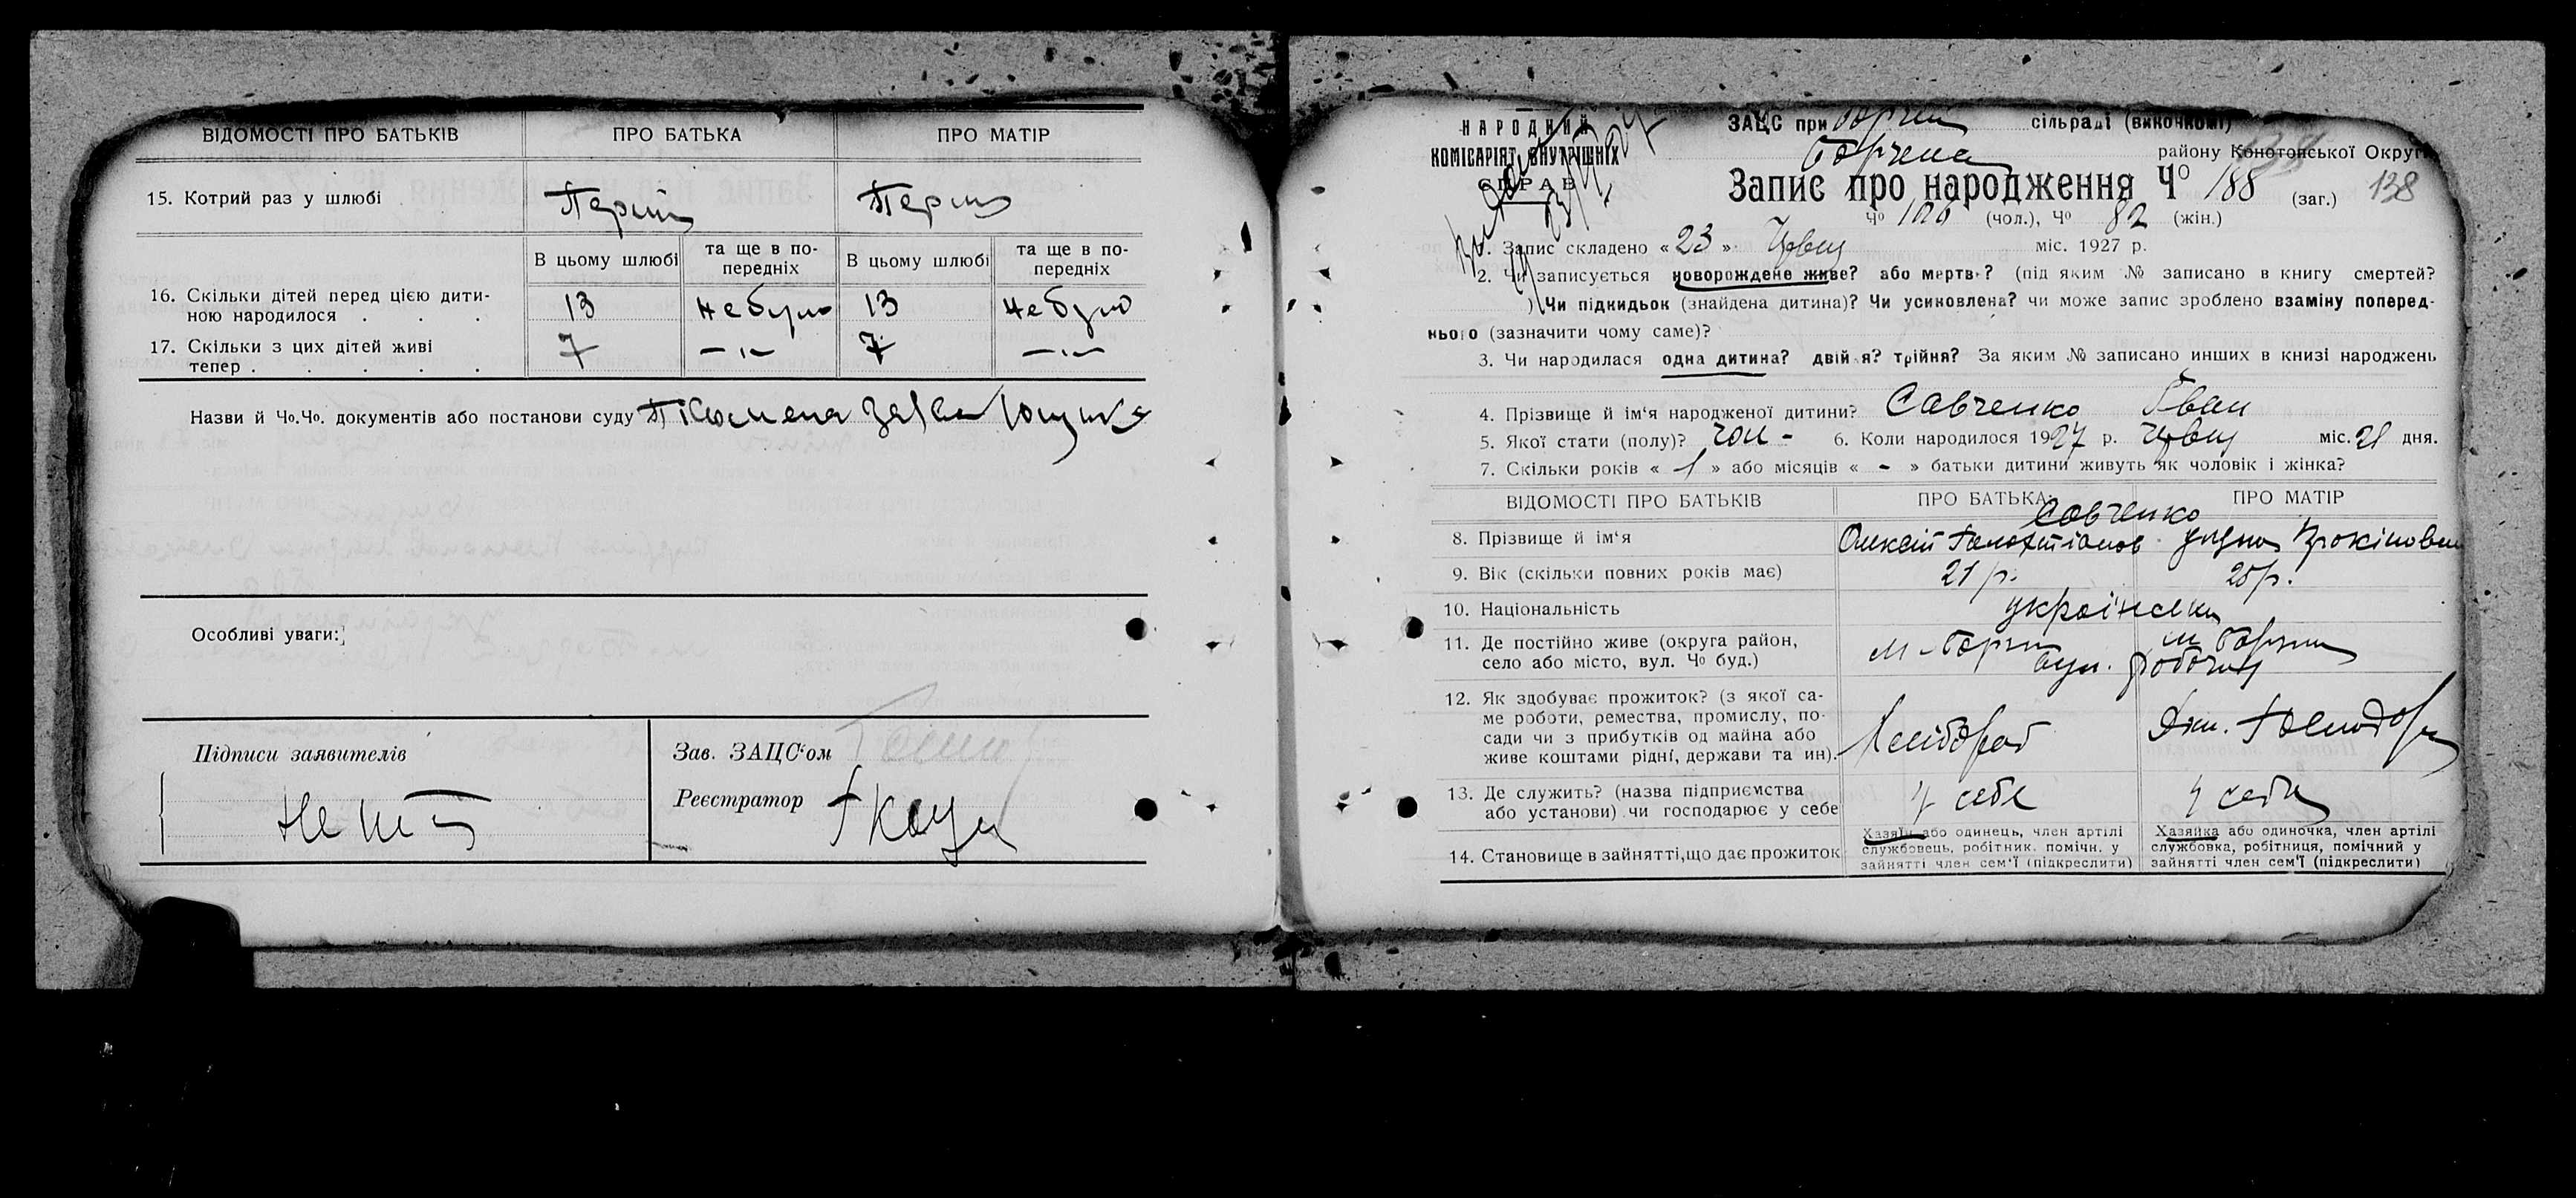 ВІДОМОСТІ ПРО БАТЬКІВ
ПРО БАТЬКА
ПРО МАТІР
15. Котрий раз у шлюбі
Перший
Перший
В цьому шлюбі
та ще в по-
передніх
В цьому шлюбі
та ще в по-
передніх
16. Скільки дітей перед цією дити-
ною народилося . . .
13
не було
13
не було
17. Скільки з цих дітей живі
тепер . . . . .
7
—"—
7
—"—
Назви й Чо.Чо. документів або постанови суду
Особливі уваги:
Підписи заявителів
Зав. ЗАЦС'ом
Реєстратор
НАРОДНИЙ
КОМІСАРІЯТ ВНУТРІШНІХ
СПРАВ
ЗАЦС при сільраді (виконкомі)
району Конотопської Округи
Запис про народження Чо 188 (заг.) 138
Чо 106 (чол.), Чо 82 (жін.)
1. Запис складено «23» Червня міс. 1927 р.
2. Чи записується новорождене живе? або мертве? (під яким № записано в книгу смертей?
) Чи підкидьок (знайдена дитина)? Чи усиновлена? чи може запис зроблено взаміну поперед-
нього (зазначити чому саме)?
3. Чи народилася одна дитина? двійня? трійня? За яким № записано инших в книзі народжень
4. Прізвище й ім'я народженої дитини? Савченко Іван
5. Якої стати (полу)? чол - 6. Коли народилося 1927 р. Червня міс. 21 дня.
7. Скільки років « 1 » або місяців « - » батьки дитини живуть як чоловік і жінка?
ВІДОМОСТІ ПРО БАТЬКІВ
ПРО БАТЬКА
ПРО МАТІР
Савченко
8. Прізвище й ім'я
9. Вік (скільки повних років має)
21 р.
20 р.
10. Національність
українці
11. Де постійно живе (округа район,
село або місто, вул. Чо буд.)
м. Борзна
м. Борзна
вул. Робоча
12. Як здобуває прожиток? (з якої са-
ме роботи, ремества, промислу, по-
сади чи з прибутків од майна або
живе коштами рідні, держави та ин).
Хлібороб
13. Де служить? (назва підприємства
або установи) чи господарює у себе
у себе
у себе
14. Становище в зайнятті, що дає прожиток
Хазяїн або одинець, член артілі
службовець, робітник. помічн. у
зайнятті член сем'ї (підкреслити)
Хазяйка або одиночка, член артілі
службовка, робітниця, помічний у
зайнятті член сем'ї (підкреслити)